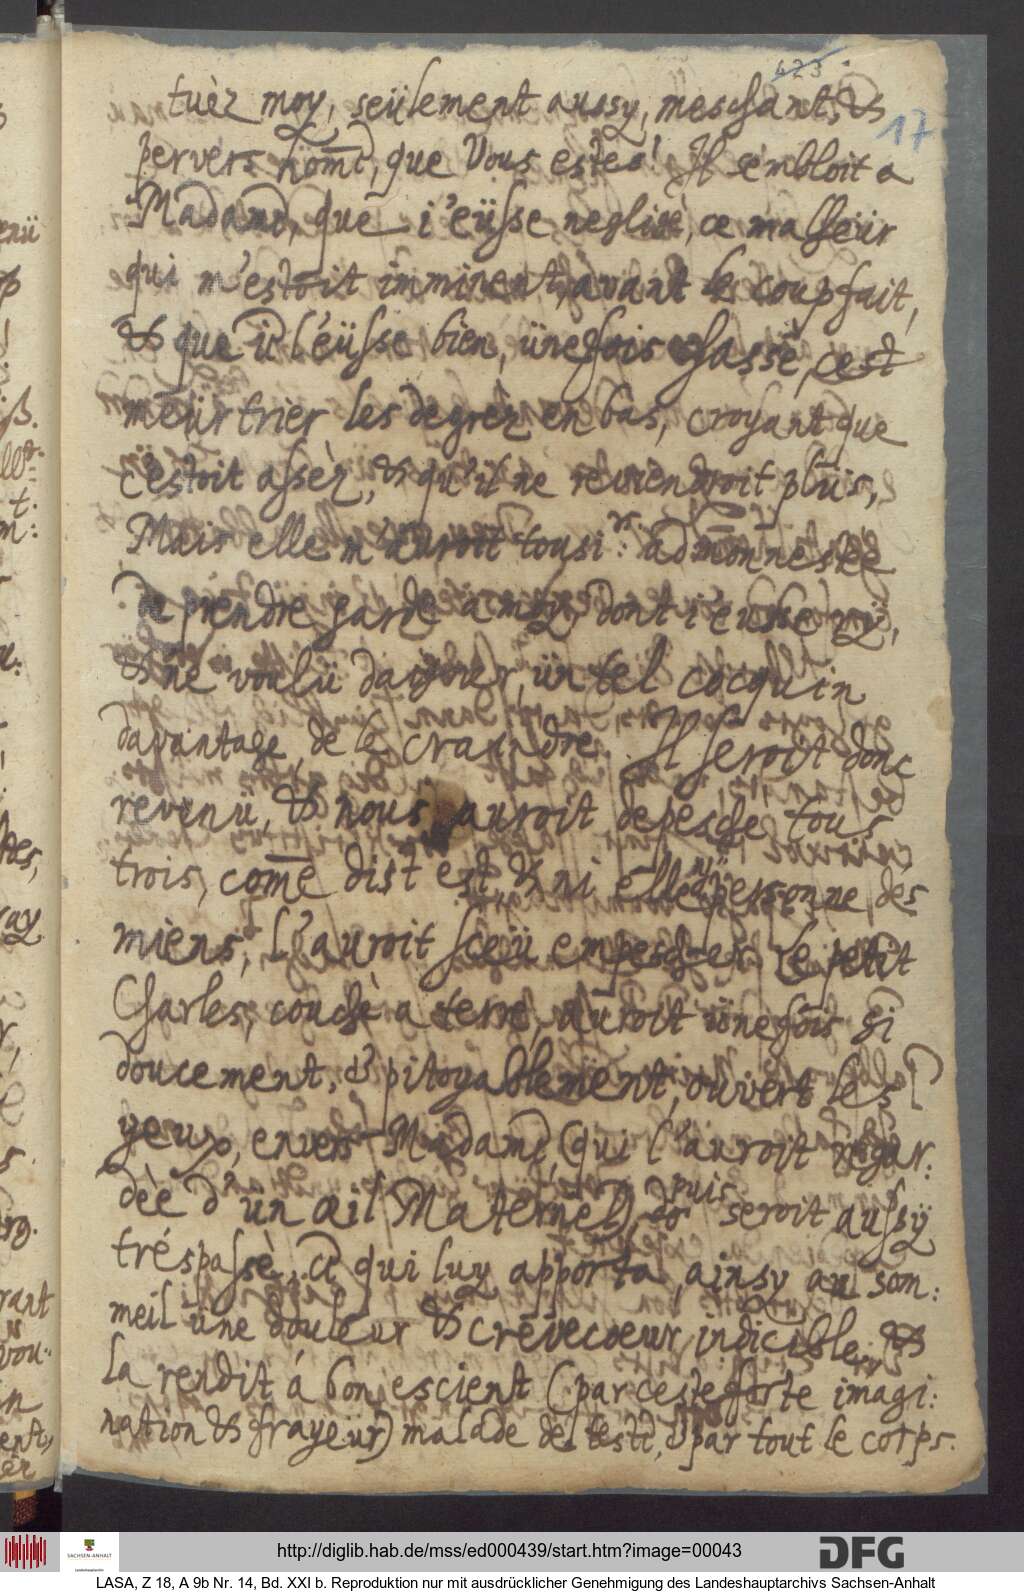 423.
17
tuèz moy, seülement aussy, meschant, &
pervers hom̄e, que Vous estes! Il sembloit a
Madame, que j'eüsse negligè, ce malheür
qui m'estoit imminent, avant le coup fait,
& que je l'eüsse bien, ünefois chassè, cest
meürtrier les degrèz en bas, croyant que
c'estoit assèz, & qu'il ne reviendroit plüs,
Mais elle m'auroit tousj:rs admonnestèe
de prendre garde a moy, dont j'eusse ry,
& ne voulü daigner, ün tel cocquin
davantage, de le craindre. Il seroit donc
revenu, & nous auroit depesché tous
trois, com̄e dist est, & ni elle, ny personne des
miens, l'auroit sceü empescher. Le petit
Charles, couchè a terre, auroit ünefois si
doucement, & pitoyablement, ouvert les
yeux, envers Madame, (qui l'auroit regar:
dèe d'ün œil Maternel) & puis seroit aussÿ
tréspassè, ce qui luy apporta, ainsy au som:
meil üne douleur & crevecœur indicible, &
la rendit á bon escient (par ceste forte imagi:
nation & frayeür) malade de teste, & par tout le corps.
http://diglib.hab.de/mss/ed000439/start.htm?image=00043
SACHSEN-ANHALT
Landeshauptarchiv
DFG
LASA, Z 18, A 9b Nr. 14, Bd. XXI b. Reproduktion nur mit ausdrücklicher Genehmigung des Landeshauptarchivs Sachsen-Anhalt